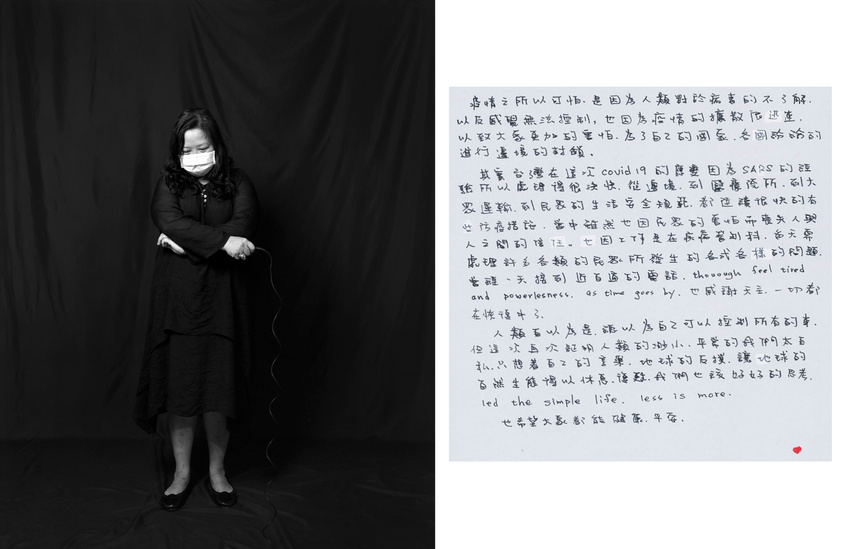 疫情之所以可怕,是因為人類對於病毒的不了解,
以及感覺無法控制,也因為疫情的擴散 迅速,
以致大家更加的害怕,為了自己的國家,各國紛紛的
進行邊境的封鎖。
其實台灣在這次covid 19的 因為SARS的經
驗所以處理得很決快,從邊境,到醫療院所,到大
眾運輸,到民眾的生活安全規範,都迅速很快的有
防疫措施,當中雖然也因民眾的害怕而喪失人與
人之間的信任。也因工作是在疾病管制科,每天要
處理許多各類的民眾所發生的各式各樣的問題,
曾經一天接到近百通的電話,thouough feel tired
and powerlesness, as time goes by, 也感謝天主,一切都
在恢復中了。
人類自以為是,誤以為自己可以控制所有的事,
但這次再次証明人類的渺小,平常的我們太自
私,只想著自己的享樂,地球的反撲,讓地球的
自然生態得以休息,復甦,我們也該好好的思考,
led the simple life, less is more.
也希望大家都能健康,平安,